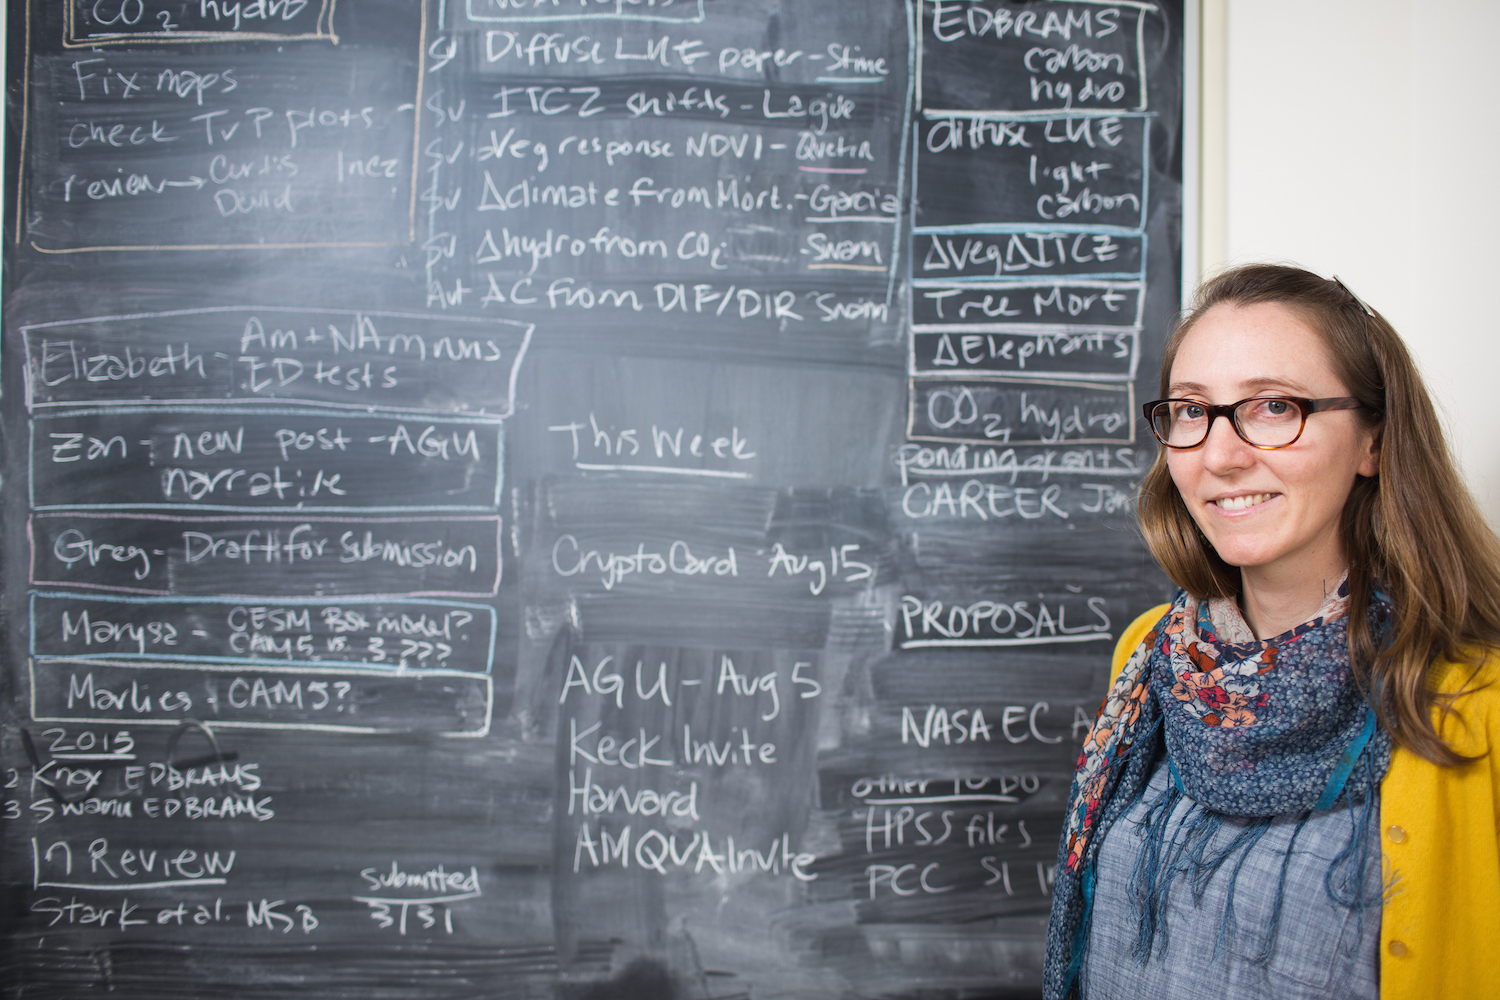 CO2 hydro
Fix maps
check TvP plots
review → Curtis Inez
David
Next Papers
SV Diffuse LUE paper - Stine
SV ITCZ shifts - Lague
SV Veg response NDVI - Quetin
SV Δclimate from Mort. - Garcia
SV Δhydro from CO2 - Swann
Aut ΔC from DIF/DIR Swann
EDBRAMS
carbon
hydro
diffuse LUE
light
carbon
ΔVegΔITCZ
Tree Mort
ΔElephants
CO2 hydro
pending grants
CAREER
PROPOSALS
NASA EC
other TO DO
HPSS files
PCC SI
Elizabeth - Am+NAm runs
ED tests
Zan - new post - AGU
narrative
Greg - Draft for submission
Marysa - CESM Bst model?
CAM5 vs. 3 ???
Marlies - CAM5?
2015
2 Knox EDBRAMS
3 Swann EDBRAMS
In Review
submitted
Stark et al. MSB 3/31
This Week
CryptoCard Aug 15
AGU - Aug 5
Keck Invite
Harvard
AMQUA Invite